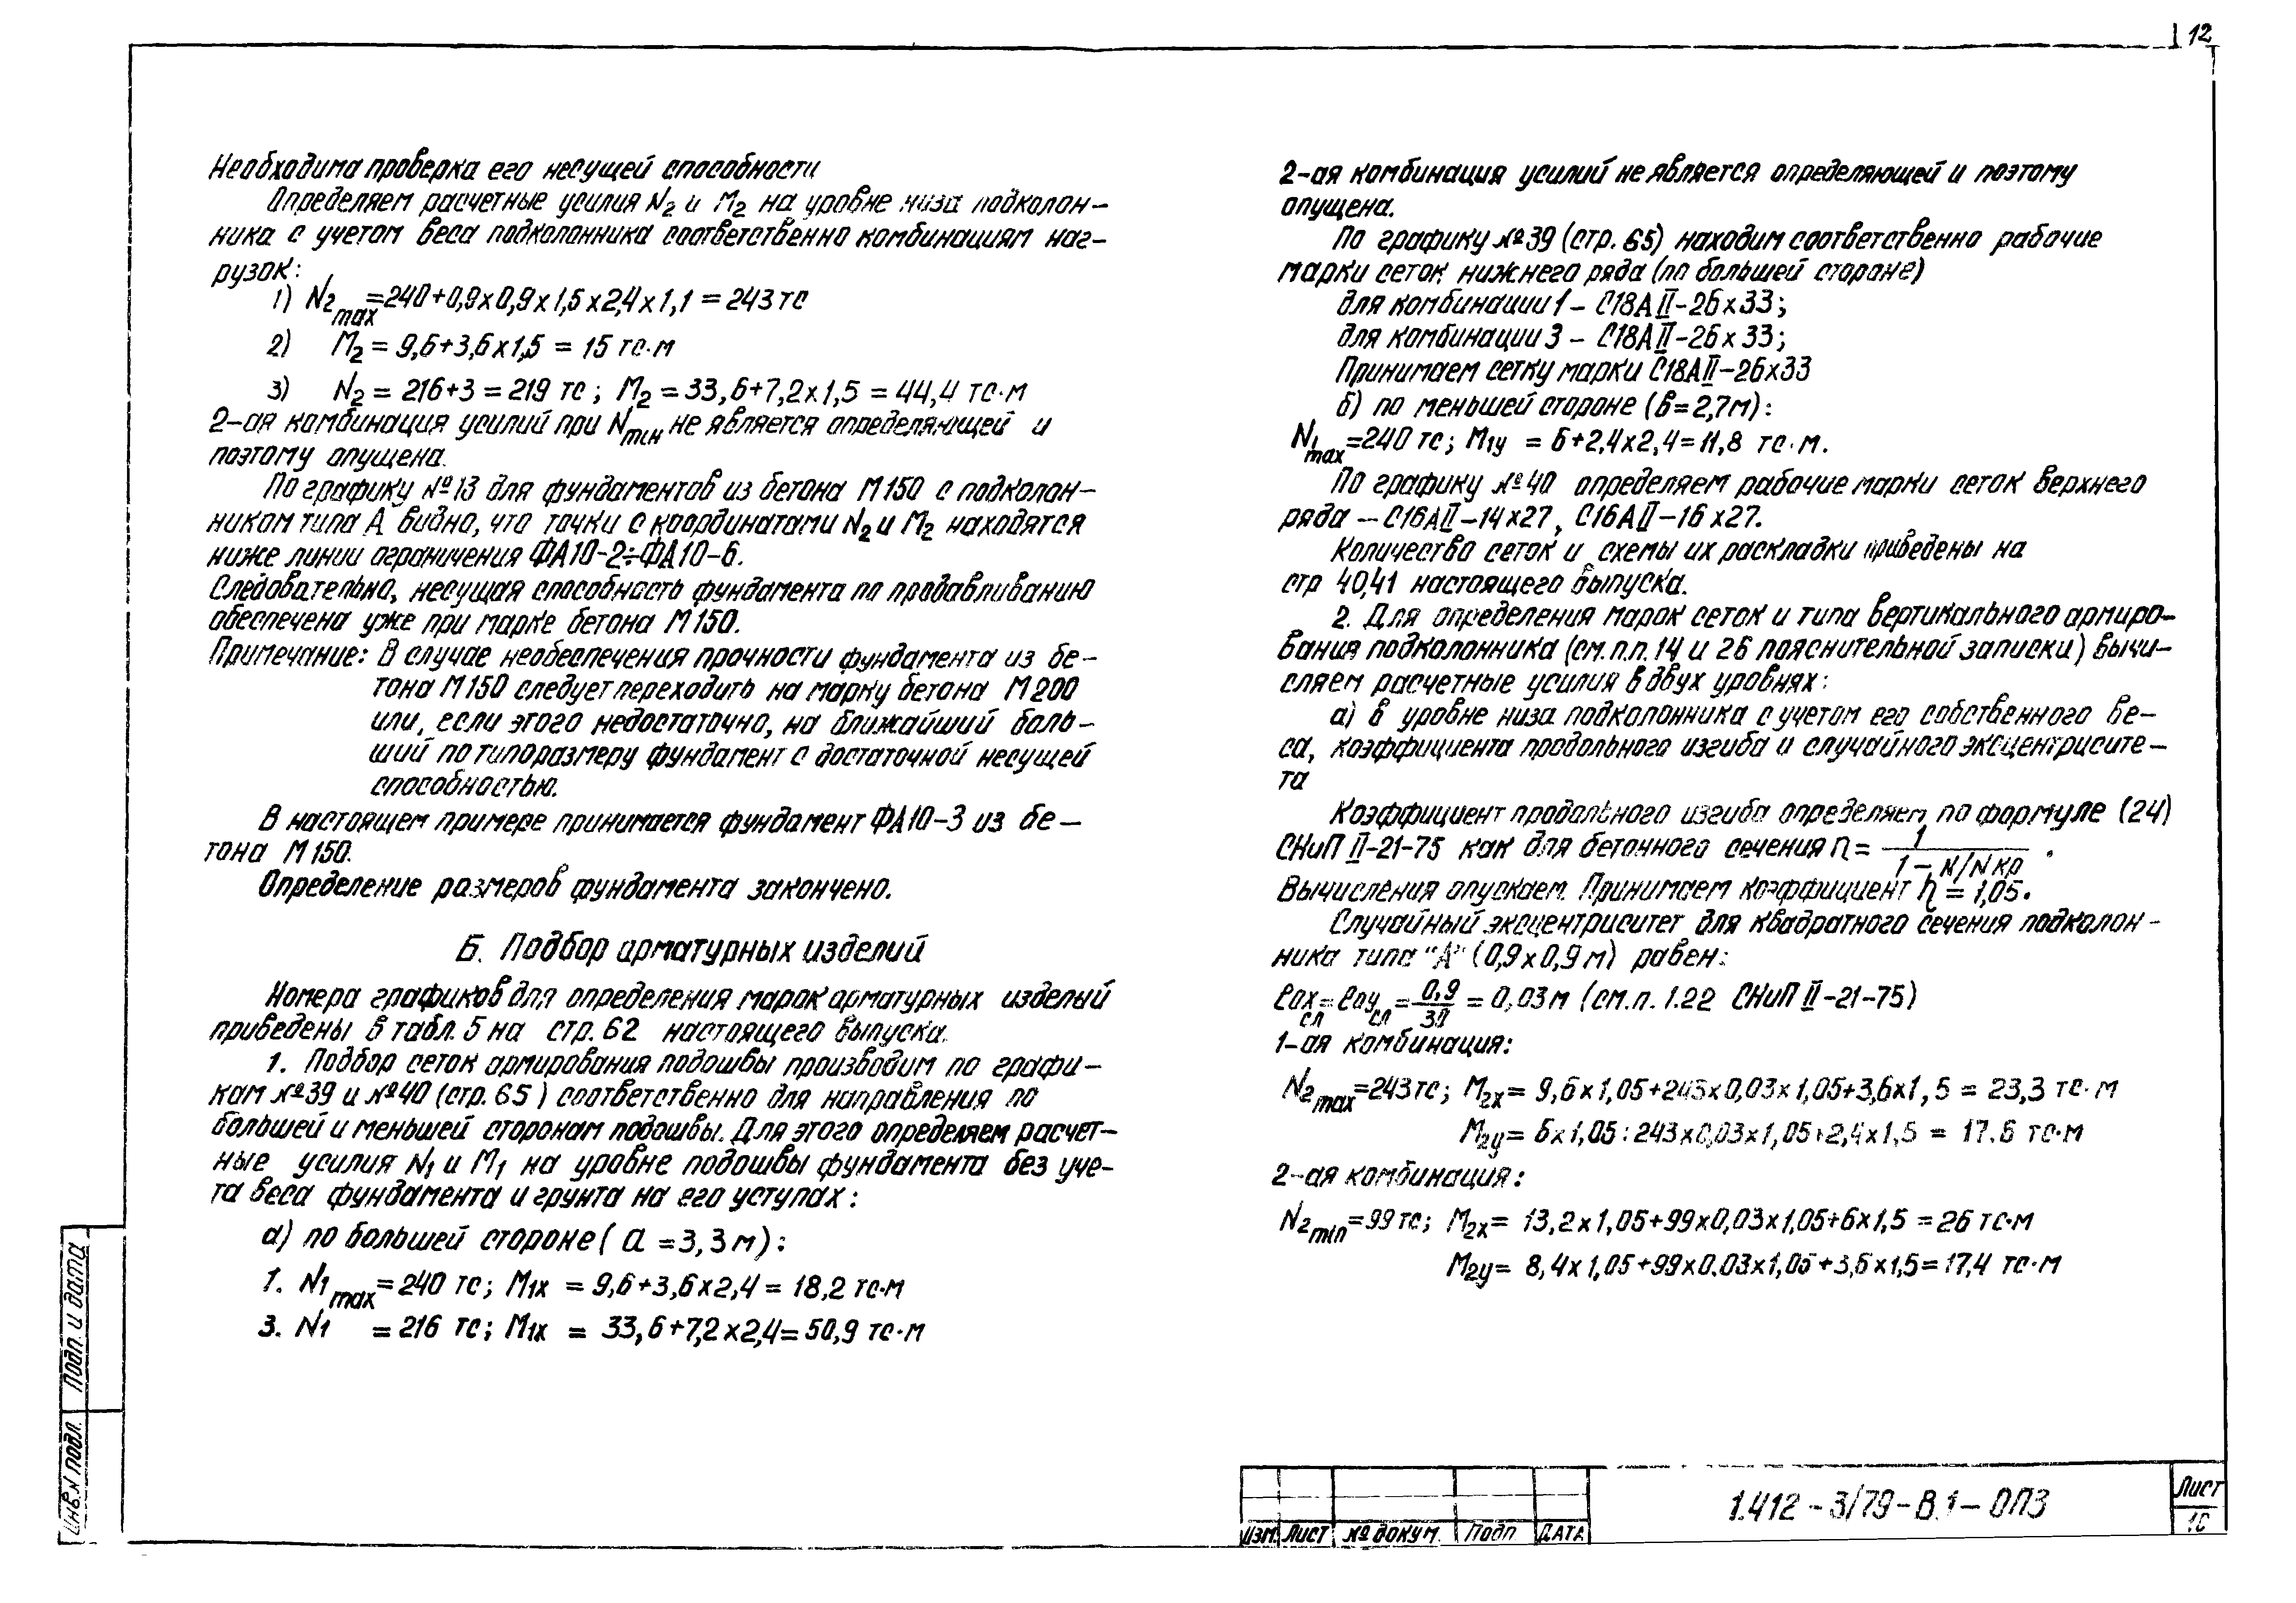 12
Необходима проверка его несущей способности
Определяем расчетные усилия N2 и M2 на уровне низа подколон-
ника с учетом веса подколонника соответственно комбинациям наг-
рузок:
1) N2max=240+0,9х0,9х1,5х2,4х1,1=243тс
2) M2=9,6+3,6х1,5 = 15 тс·м
3) N2=216+3=219 тс; M2=33,6+7,2х1,5 = 44,4 тс·м
2-ая комбинация усилий при Nmin не является определяющей и
поэтому опущена.
По графику №13 для фундаментов из бетона М150 с подколон-
ником типа А видно, что точки с координатами N2 и M2 находятся
ниже линии ограничения ФА10-2÷ФА10-6.
Следовательно, несущая способность фундамента по продавливанию
обеспечена уже при марке бетона М150.
Примечание: В случае необеспечения прочности фундамента из бе-
тона М150 следует переходить на марку бетона М200
или, если этого недостаточно, на ближайший боль-
ший по типоразмеру фундамент с достаточной несущей
способностью.
В настоящем примере принимается фундамент ФА10-3 из бе-
тона М150.
Определение размеров фундамента закончено.
Б. Подбор арматурных изделий
Номера графиков для определения марок арматурных изделий
приведены в табл. 5 на стр. 62 настоящего выпуска.
1. Подбор сеток армирования подошвы производим по графи-
кам №39 и №40 (стр. 65) соответственно для направления по
большей и меньшей сторонам подошвы. Для этого определяем расчет-
ные усилия N1 и M1 на уровне подошвы фундамента без уче-
та веса фундамента и грунта на его уступах:
а) по большей стороне (а =3,3м):
1. N1max=240 тс; M1х = 9,6+3,6х2,4= 18,2 тс·м
3. N1 =216 тс; M1х = 33,6+7,2х2,4=50,9 тс·м
2-ая комбинация усилий не является определяющей и поэтому
опущена.
По графику №39 (стр. 65) находим соответственно рабочие
марки сеток нижнего ряда (по большей стороне)
для комбинации 1 - С18АII-26х33;
для комбинации 3 - С18АII-26х33;
Принимаем сетку марки С18АII-26х33
б) по меньшей стороне (в=2,7м):
N1max=240 тс; M1у = 6+2,4х2,4=11,8 тс·м.
По графику №40 определяем рабочие марки сеток верхнего
ряда - С16АII-14х27, С16АII-16х27.
Количество сеток и схемы их раскладки приведены на
стр 40,41 настоящего выпуска.
2. Для определения марок сеток и типа вертикального армиро-
вания подколонника (см. п.п. 14 и 26 пояснительной записки) вычи-
сляем расчетные усилия в двух уровнях:
а) в уровне низа подколонника с учетом его собственного ве-
са, коэффициента продольного изгиба и случайного эксцентрисите-
та
Коэффициент продольного изгиба определяем по формуле (24)
СНиП II-21-75 как для бетонного сечения η= 1/(1-N/Nкр).
Вычисления опускаем. Принимаем коэффициент η=1,05.
Случайный эксцентриситет для квадратного сечения подколон-
ника типа "А" (0,9х0,9м) равен:
еохсл=еоусл=0,9/30=0,03м (см. п. 1.22 СНиП II-21-75)
1-ая комбинация:
N2max=243тс; M2х=9,6х1,05+243х0,03х1,05+3,6х1,5 = 23,3 тс·м
M2у= 6х1,05+243х0,03х1,05+2,4х1,5 = 17.6 тс·м
2-ая комбинация:
N2min=99тс; M2х= 13,2х1,05+99х0,03х1,05+6х1,5 =26 тс·м
M2у= 8,4х1,05+99х0.03х1,05+3,6х1,5=17,4 тс·м
Инв.N подл. Подп. и дата
изм. Лист № докум. Подп ДАТА
1.412-3/79-В.1-ОПЗ
Лист
10